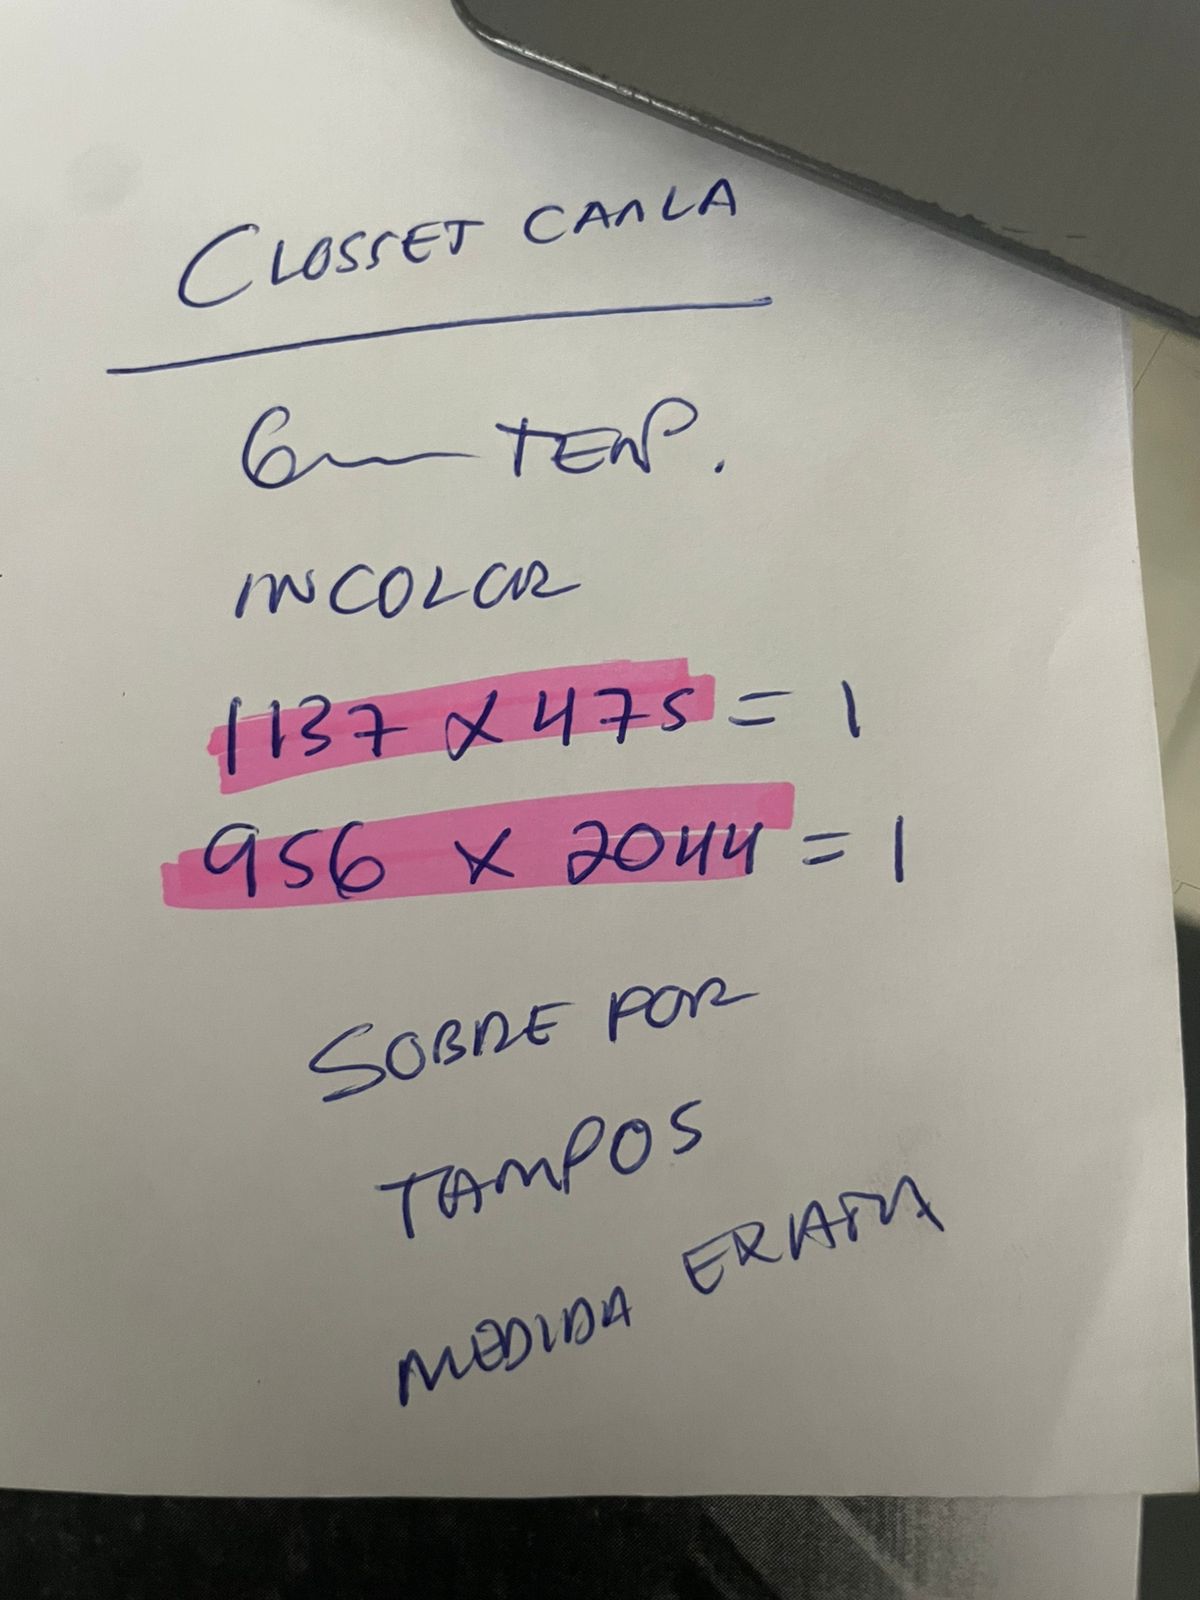 CLOSSET CARLA
6mm TEMP.
INCOLOR
1137 X 475 = 1
956 X 2044 = 1
SOBRE POR
TAMPOS
MEDIDA ERRADA